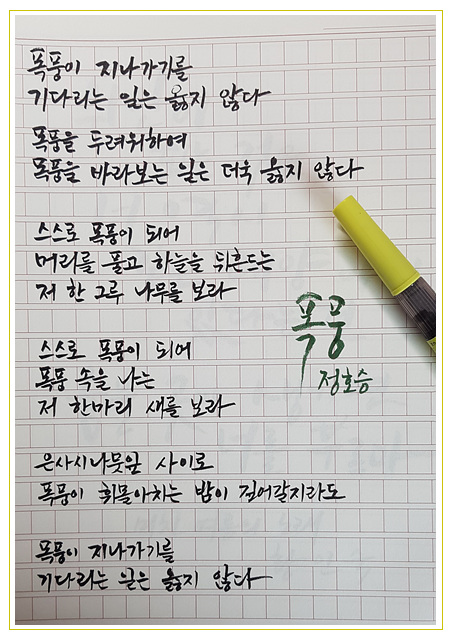 폭풍이 지나가기를
기다리는 일은 옳지 않다
폭풍을 두려워하여
폭풍을 바라보는 일은 더욱 옳지 않다
스스로 폭풍이 되어
머리를 풀고 하늘을 뒤흔드는
저 한 그루 나무를 보라
스스로 폭풍이 되어
폭풍 속을 나는
저 한마리 새를 보라
은사시나뭇잎 사이로
폭풍이 휘몰아치는 밤이 깊어갈지라도
폭풍이 지나가기를
기다리는 일은 옳지 않다
폭풍
정호승